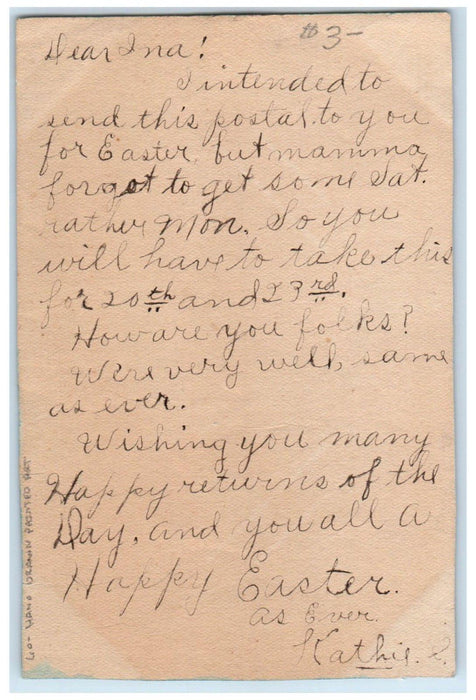 #3-
Dear Ina!
I intended to
send this postal to you
for Easter, but mamma
forgot to get some Sat.
rather Mon. So you
will have to take this
for 20th and 23rd.
How are you folks?
We're very well, same
as ever.
Wishing you many
Happy returns of the
Day, and you all a
Happy Easter.
As Ever.
Kathie.
HAND DRAWN PAINTED ART